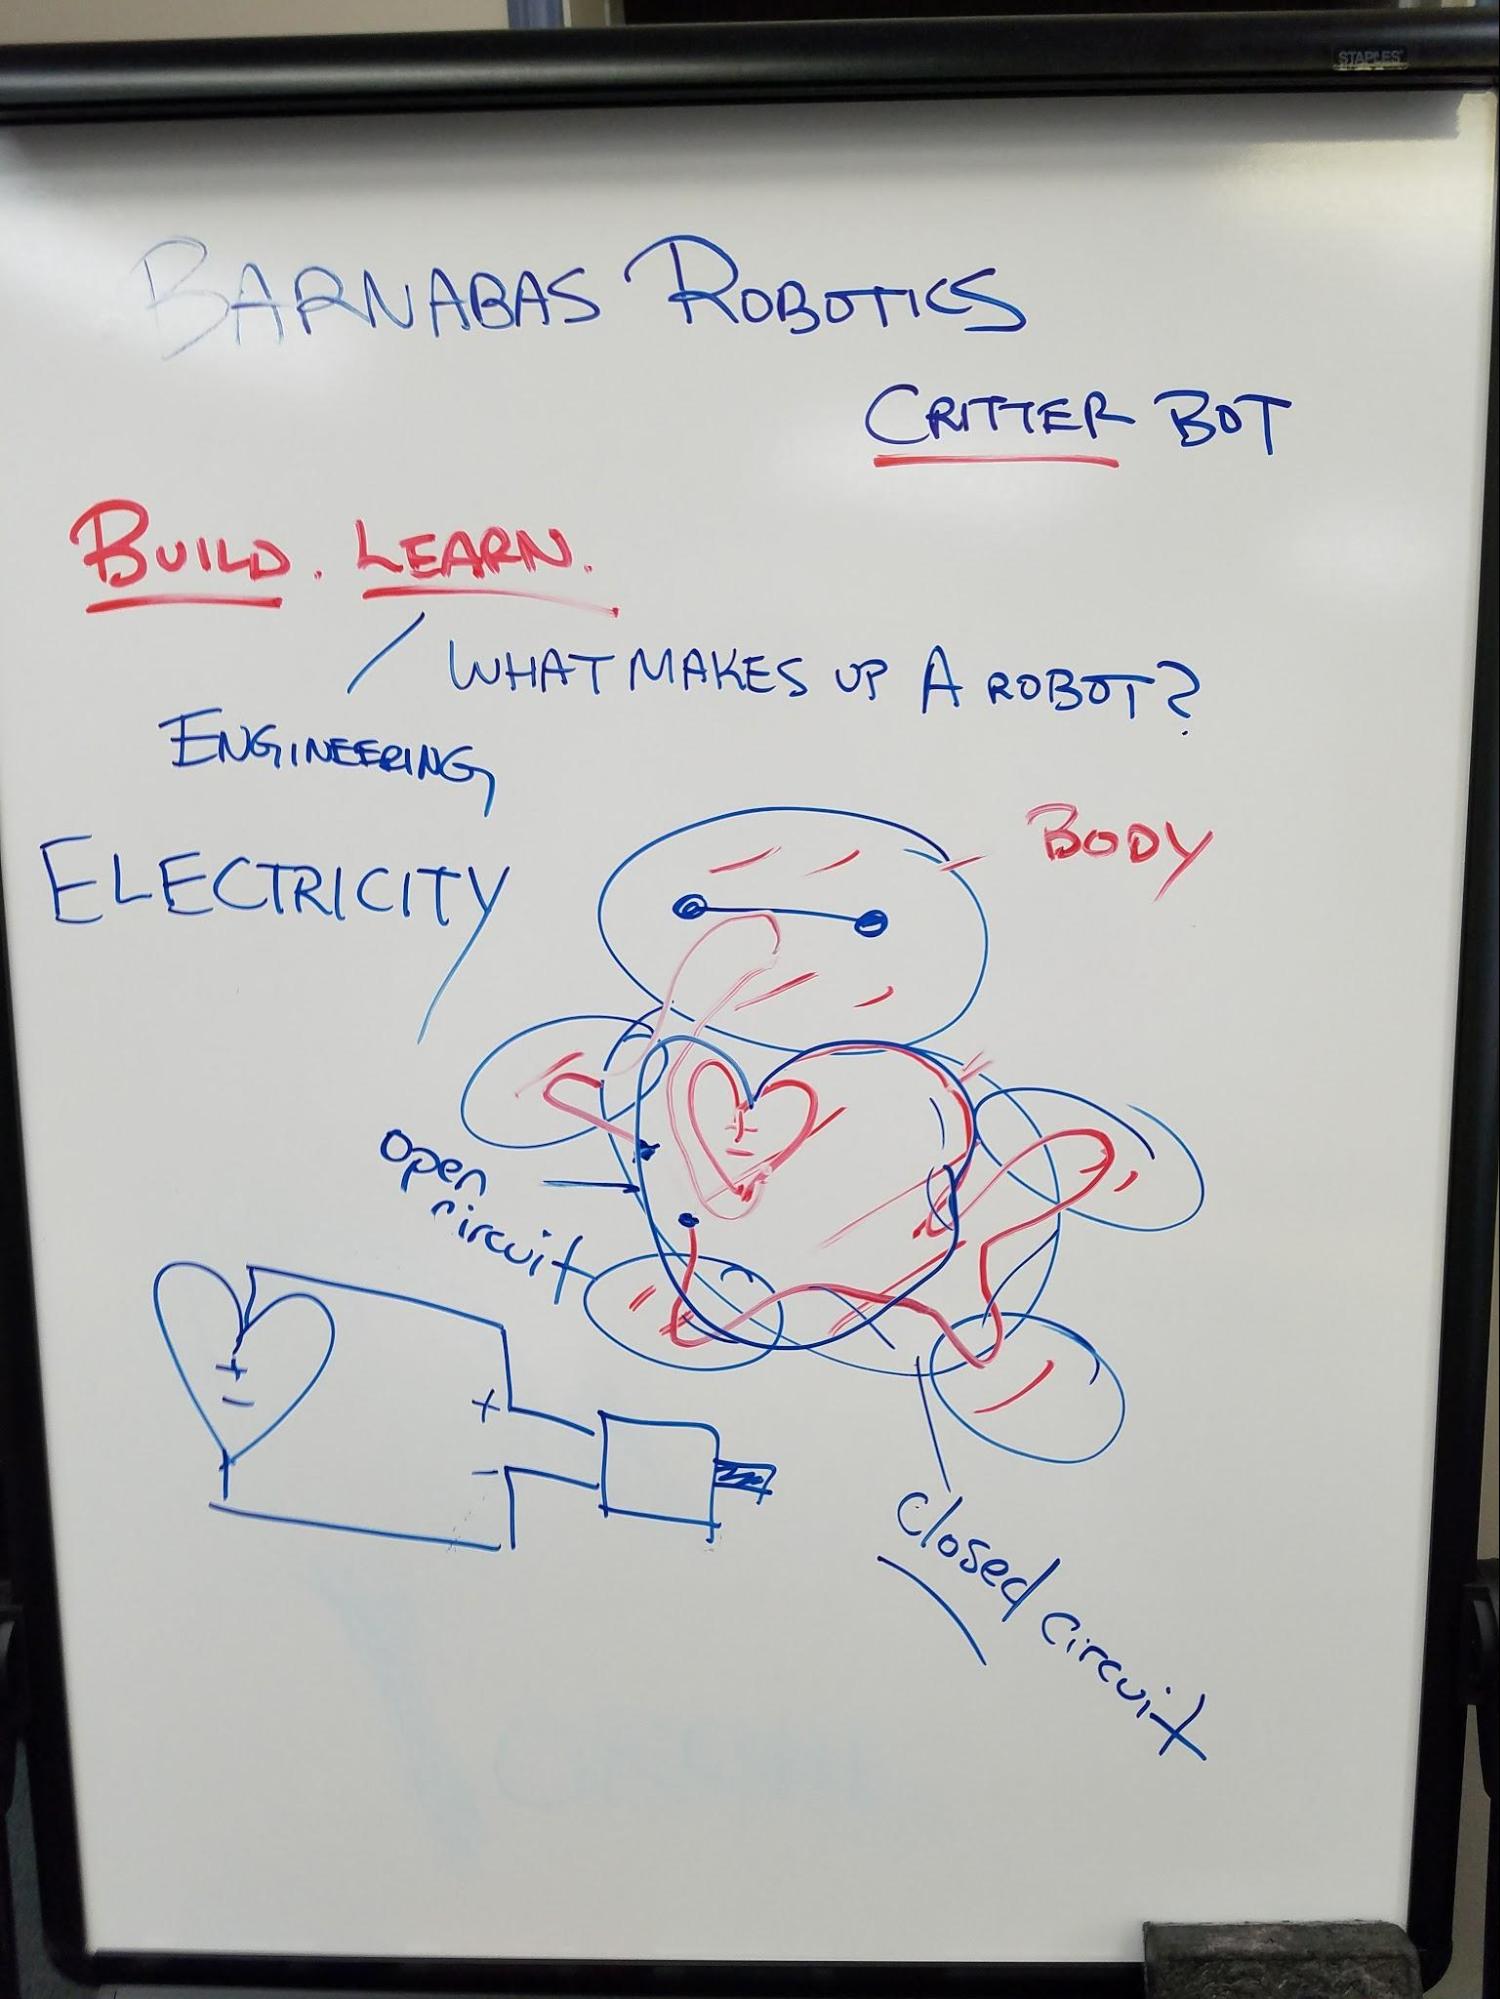 STAPLES
BARNABAS ROBOTICS
CRITTER BOT
BUILD. LEARN.
WHAT MAKES UP A ROBOT?
ENGINEERING
BODY
ELECTRICITY
+
-
open
circuit
+
-
+
-
closed circuit